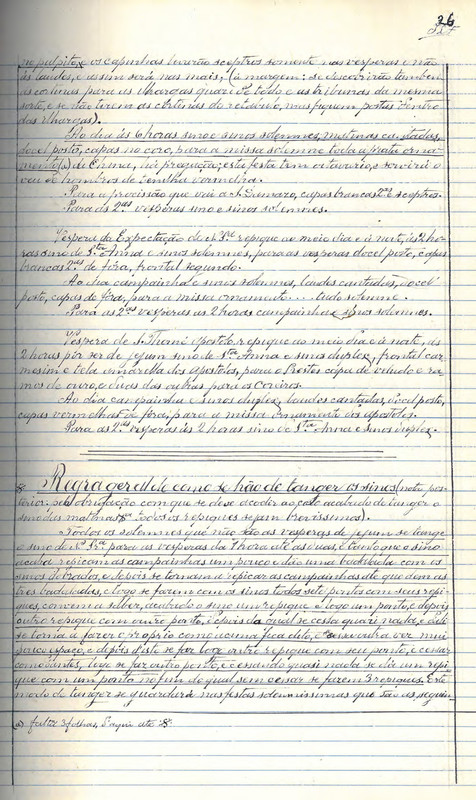 26
no pulpito, e os capinhas levarão sceptros somente nas vesperas e não
ás laudes, e assim será nas mais, (á margem: se descobrirão tambem
as colunas para as ilhargas quasi de todo e as tribunas da mesma
sorte, e se não tirem as cortinas do retabolo, mas fiquem postas dentro
das ilhargas).
Ao dia ás 6 horas sino e sinos solemnes, matinas cantadas,
docel posto, capas no coro, para a missa solemne toda a parte orna-
mento (a) de Ormuz, ha prégação; esta festa tem oitavario, e servirá o
veu de hombros de seuilha vermelha.
Para a procissão que vai a S. Damazo, capas brancas 2as e sceptros.
Para as 2as vesperas sino e sinos solemnes.
Vespera da Expectação de N. Sra repique ao meio dia e á noite, ás 2 ho-
ras sino de Sta Anna e sinos solemnes, para as vesperas docel posto, capas
brancas 2as de fora, frontal segundo.
Ao dia campainha e sinos solemnes, laudes cantadas, docel
posto, capas de fora, para a missa ornamento... tudo solemne.
Para as 2as vesperas ás 2 horas campainha e sinos solemnes.
Vespera de S. Thomé Apostolo repique ao meio dia e á noite, ás
2 horas por ser de jejum sino de Sta Anna e sinos duplex, frontal car-
mesim e tela amarella dos apostolos, para o Prestes capa de veludo e ra-
mos de ouro, e duas das outras para os coreiros.
Ao dia campainha e sinos duplex, laudes cantadas, docel posto,
capas vermelhas de fora, para a missa ornamento dos apostolos.
Para as 2as vesperas ás 2 horas sino de Sta Anna e sinos duplex.
Regra geral de como se hão de tanger os sinos (nota pos-
terior: pela obrigação com que se deve acodir ao coro acabado de tanger o
sino das matinas. Todos os repiques sejam brevissimos).
Todos os solemnes que não são as vesperas de jejum se tange
o sino de N. Sra para as vesperas da 1 hora até as duas, e tanto que o sino
acaba repicam as campainhas um pouco e dão uma badalada com os
sinos dobrados, e depois se tornam a repicar as campainhas até que dem as
tres badaladas, e logo se fazem com os sinos todos sete pontos com seus repi-
ques, convem a saber, acabado o sino um repique e logo um ponto, e depois
outro repique com outro ponto, e depois do qual se cesta quasi nada, e até
se torna a fazer o proprio como acima fica dito, e cessa outra vez mui
pouco espaço, e depois d'este se faz logo outro repique com seu ponto, e cessar
como antes, logo se faz outro ponto, e cessando quasi nada se dá um repi-
que com um ponto no fim do qual sem cessar se fazem 3 repiques. Este
modo de tanger se guardará nas festas solemnissimas que são as seguin-
(a) faltam 3 folhas, 5 aqui até